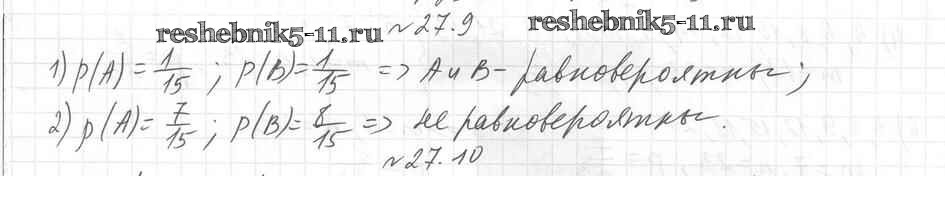 №27.9
reshebnik5-11.ru reshebnik5-11.ru
1) p(A) = 1/15 ; p(B) = 1/15 => A и B - равновероятны;
2) p(A) = 7/15 ; p(B) = 8/15 => не равновероятны.
№27.10